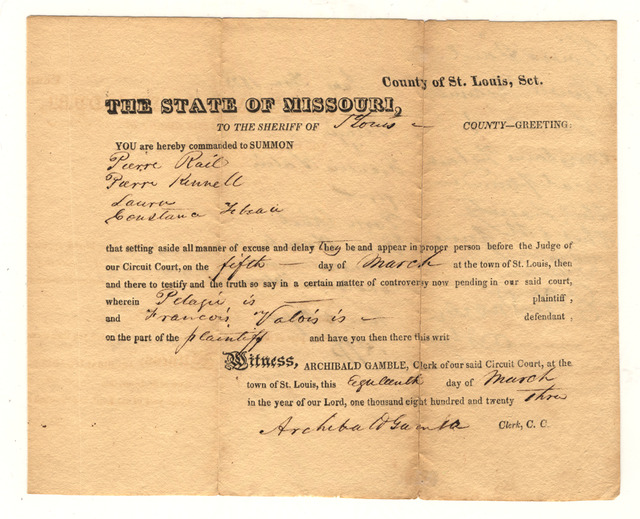 County of St. Louis, Sct.
THE STATE OF MISSOURI,
TO THE SHERIFF OF St Louis COUNTY—GREETING:
YOU are hereby commanded to SUMMON
Pierre Rail
Pierre Kennell
Laura
Constana
that setting aside all manner of excuse and delay they be and appear in proper person before the Judge of
our Circuit Court, on the fifth day of March at the town of St. Louis, then
and there to testify and the truth so say in a certain matter of controversy now pending in our said court,
wherein Pelagie is plaintiff,
and Francois Valois is defendant,
on the part of the plaintiff and have you then there this writ
Witness, ARCHIBALD GAMBLE, Clerk of our said Circuit Court, at the
town of St. Louis, this day of March
in the year of our Lord, one thousand eight hundred and twenty three
Archibald Gamble Clerk, C. C.